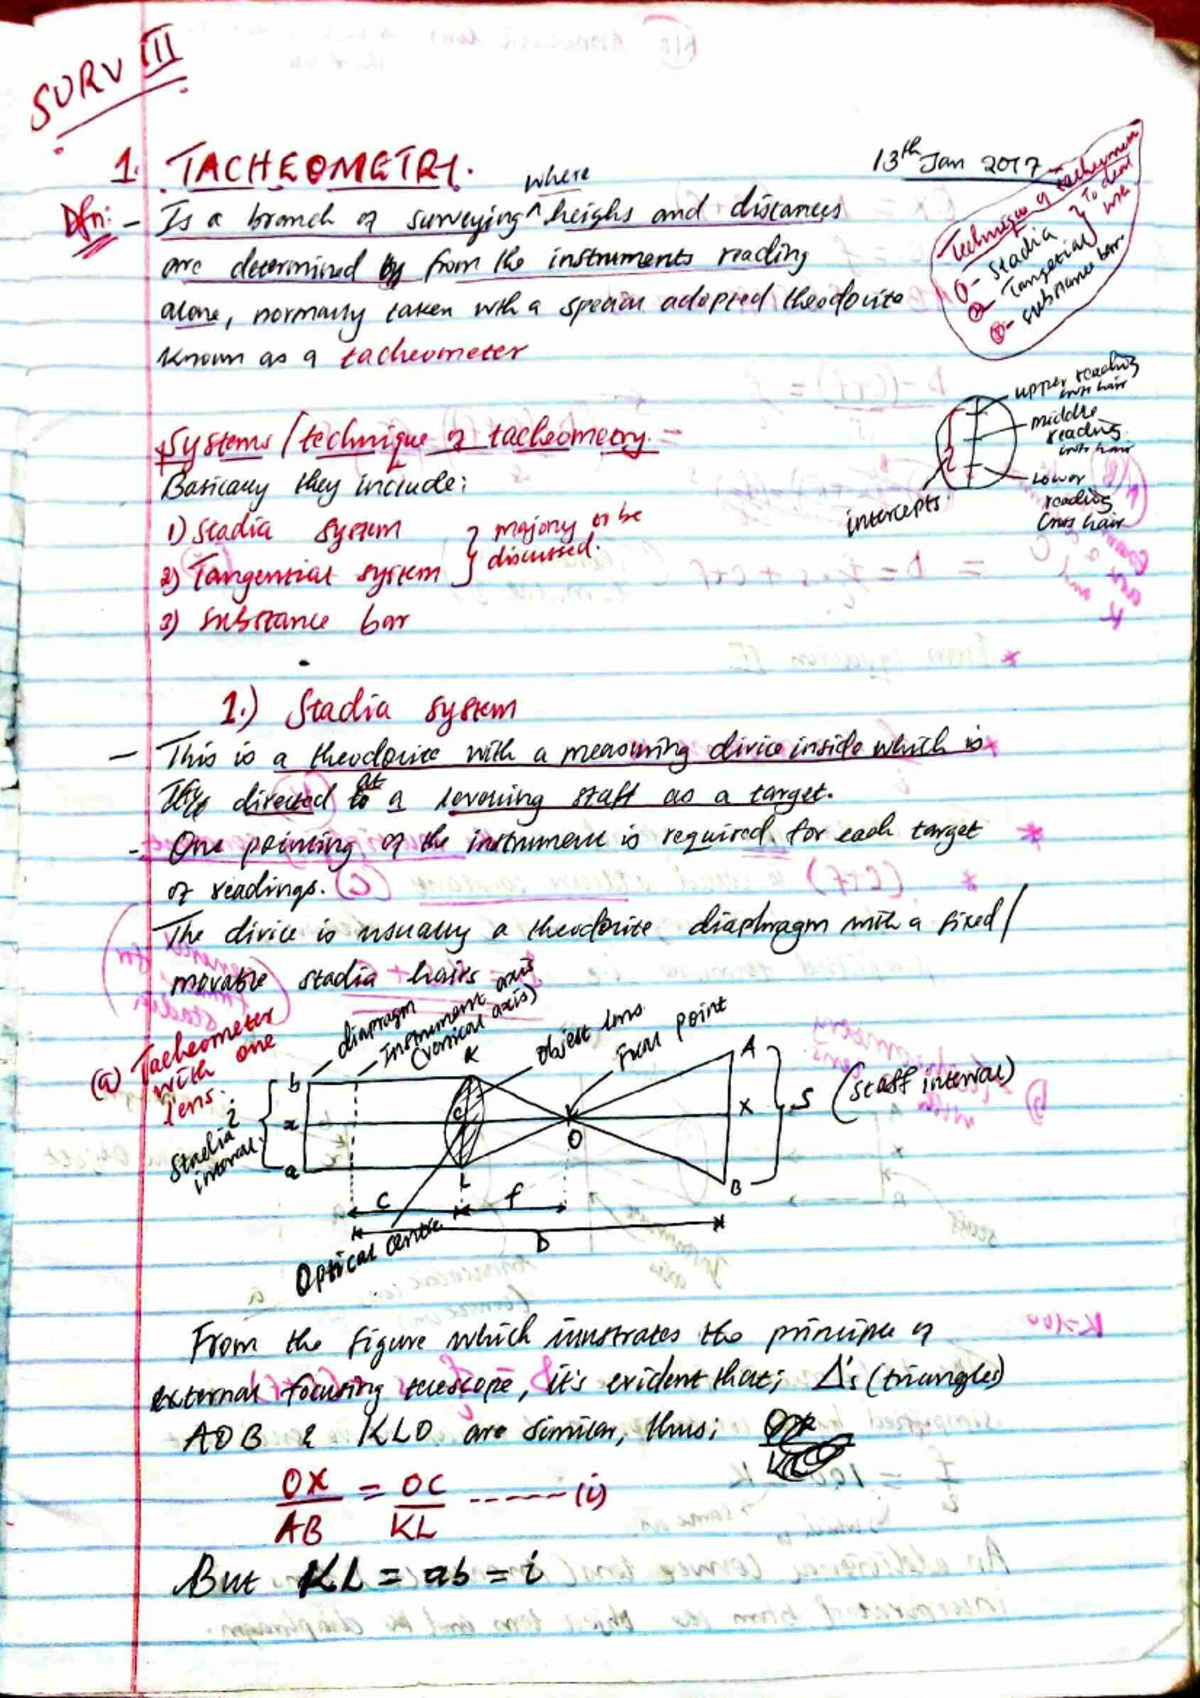 SURV III
1. TACHEOMETRY.
13th Jan 2017
Techniques of tacheometry
① - Stadia
② - Tangetial } To deal with
③ - substance bar.
Dfn: - Is a branch of surveying ^ where heighs and distances
are determined by from the instruments reading
alone, normally taken with a special adopted theodorite
known as a tacheometer
Systems / technique of tacheometry.
Basically they include:
1) Stadia system
2) Tangential system } majory to be discussed.
3) substance bar
upper reading cross hair
middle reading cross hair
Lower reading Cross hair
intercepts
1.) Stadia system
- This is a theodorite with a measuring divice inside which is
directed at a levelling staff as a target.
- One pointing of the instrument is required for each target
of readings.
The divice is usually a theodorite diaphragm with a fixed/
movable stadia hairs
(a) Tacheometer with one lens.
diaphragm
Instrument axis (vertical axis)
Object lens
Focal point
K
A
b
x
C
X
S (staff interval)
O
a
L
B
Stadia interval i
c
f
D
Optical centre
From the figure which illustrates the principle of
external focusing telescope, it's evident that; Δ's (triangles)
AOB & KLO are similar, thus;
OX/AB = OC/KL ------- (i)
But KL = ab = i